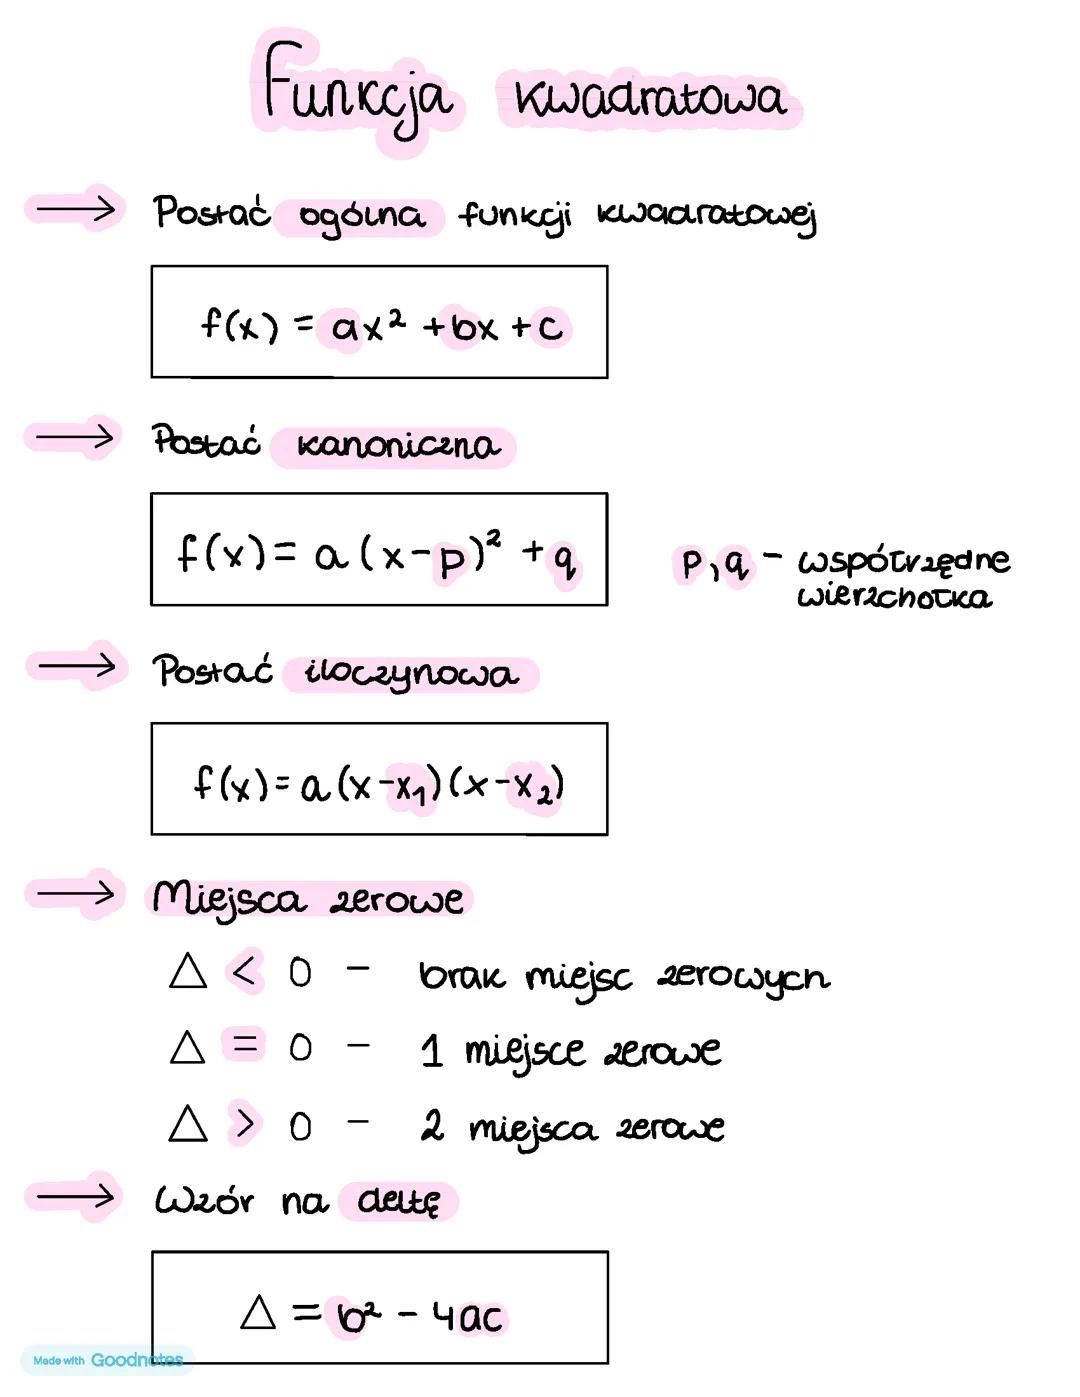 Funkcja kwadratowa
→ Postać ogólna funkcji kwadratowej
f(x) = ax² + bx + c
→ Postać kanoniczna
f(x) = a(x-p)² + q
p, q - współrzędne
wierzchołka
→ Postać iloczynowa
f(x) = a(x-x₁)(x-x₂)
→ Miejsca zerowe
△ < 0 - brak miejsc zerowych
△ = 0 - 1 miejsce zerowe
△ > 0 - 2 miejsca zerowe
→ Wzór na deltę
△ = b² - 4ac
Made with Goodnotes